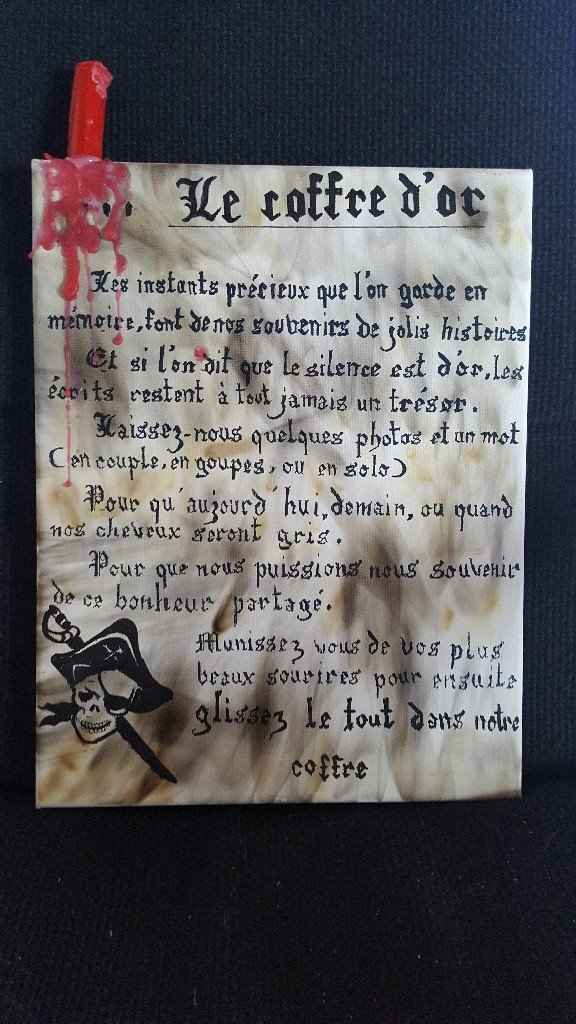 Le coffre d'or
Les instants précieux que l'on garde en
mémoire, font de nos souvenirs de jolis histoires
Et si l'on dit que le silence est d'or, les
écrits restent à tout jamais un trésor.
Laissez-nous quelques photos et un mot
(en couple, en goupes, ou en solo)
Pour qu'aujourd'hui, demain, ou quand
nos cheveux seront gris.
Pour que nous puissions nous souvenir
de ce bonheur partagé.
Munissez vous de vos plus
beaux sourires pour ensuite
glissez le tout dans notre
coffre